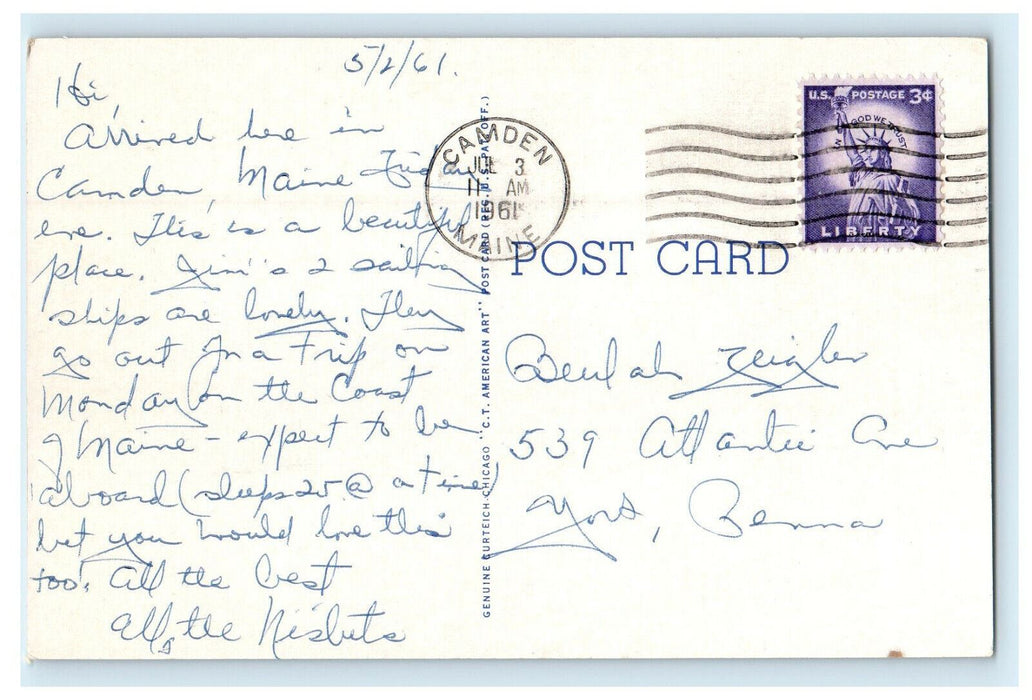 5/2/61.
Hi,
Arrived here in
Camden, Maine Friday
eve. This is a beautiful
place. Jim's 2 sailing
ships are lovely. They
go out for a trip on
Monday on the Coast
of Maine - expect to be
aboard (sleeps 25 @ a time)
bet you would love this
too! All the best
All, the Nisbets
GENUINE CURTEICH-CHICAGO "C.T. AMERICAN ART" POST CARD (REG. U.S. PAT. OFF.)
CAMDEN
JUL 3
11 AM
1961
MAINE
U.S. POSTAGE 3¢
IN GOD WE TRUST
LIBERTY
POST CARD
Beulah Zeigler
539 Atlantic Ave
York, Penna